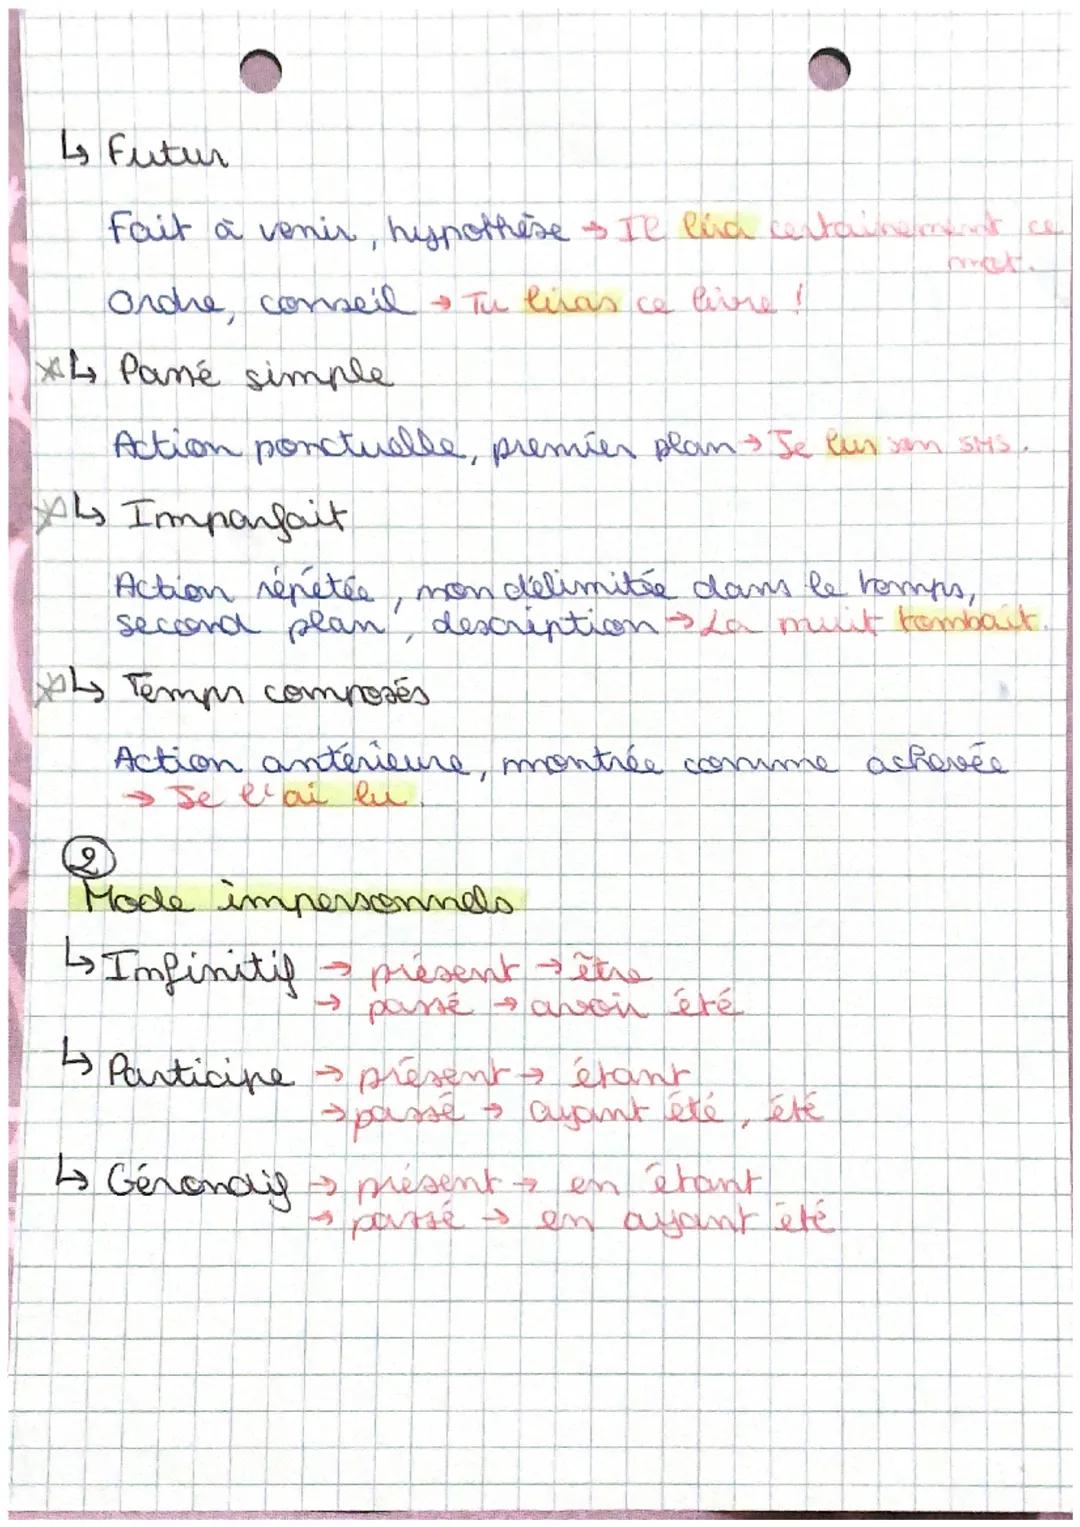 ↳ Futur
Fait à venir, hypothèse → Il lira certainement ce
mot.
Ordre, conseil → Tu liras ce livre !
↳ Passé simple
Action ponctuelle, premier plan → Je lus son SMS.
↳ Imparfait
Action répétée, non délimitée dans le temps,
second plan, description → La nuit tombait.
↳ Temps composés
Action antérieure, montrée comme achevée
→ Je l'ai lu.
2
Mode impersonnels
↳ Infinitif → présent → être
→ passé → avoir été
↳ Participe → présent → étant
→ passé → ayant été, été
↳ Gérondif → présent → en étant
→ passé → en ayant été